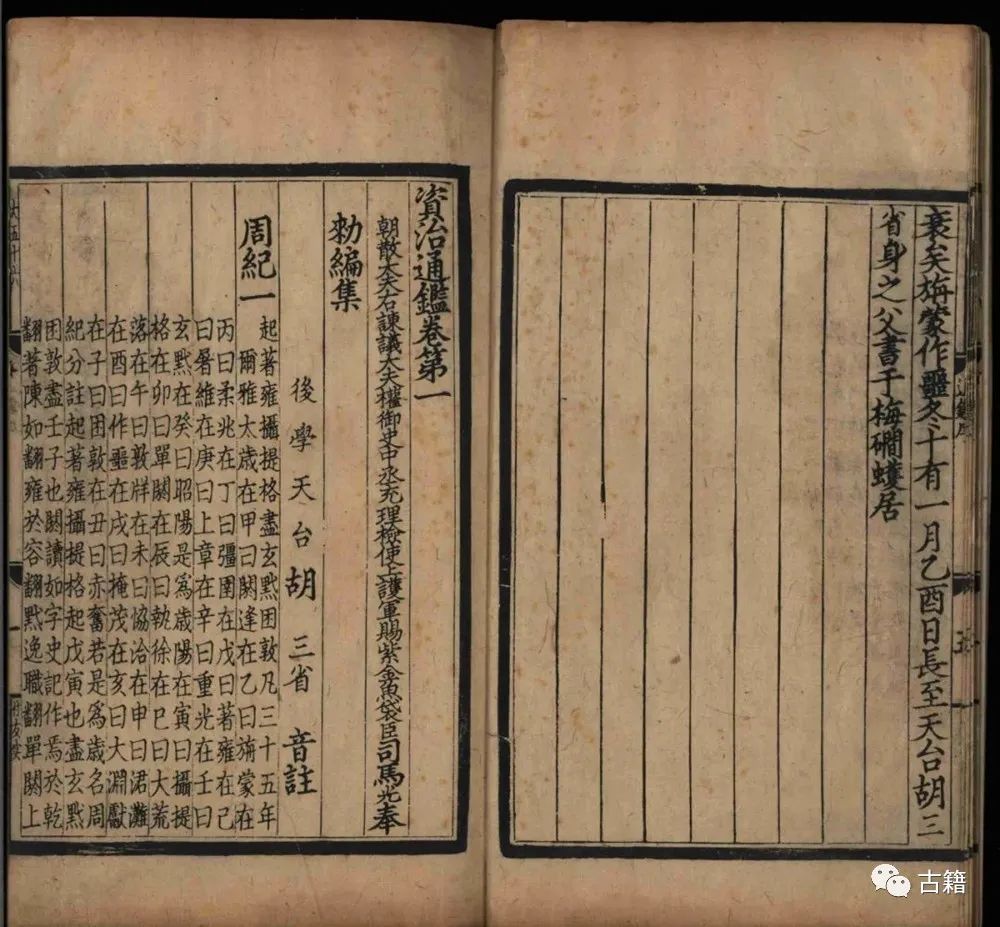 衰矣旃蒙作噩冬十有一月乙酉日長至天台胡三
省身之父書于梅磵蠖居
資治通鑑卷第一
朝散大夫右諫議大夫權御史中丞充理檢使上護軍賜紫金魚袋臣司馬光奉
勑編集
後學天台胡三省音註
周紀一
起著雍攝提格盡玄黓困敦凡三十五年
爾雅太歲在甲曰閼逢在乙曰旃蒙在
丙曰柔兆在丁曰彊圉在戊曰著雍在己
曰屠維在庚曰上章在辛曰重光在壬曰
玄黓在癸曰昭陽是為歲陽在寅曰攝提
格在卯曰單閼在辰曰執徐在巳曰大荒
落在午曰敦牂在未曰協洽在申曰涒灘
在酉曰作噩在戌曰掩茂在亥曰大淵獻
在子曰困敦在丑曰赤奮若是為歲名周
紀分註起著雍攝提格起戊寅也盡玄黓
困敦盡壬子也閼讀如字史記作焉於乾
翻著陳如翻雍於容翻黓逸職翻單閼上
古籍